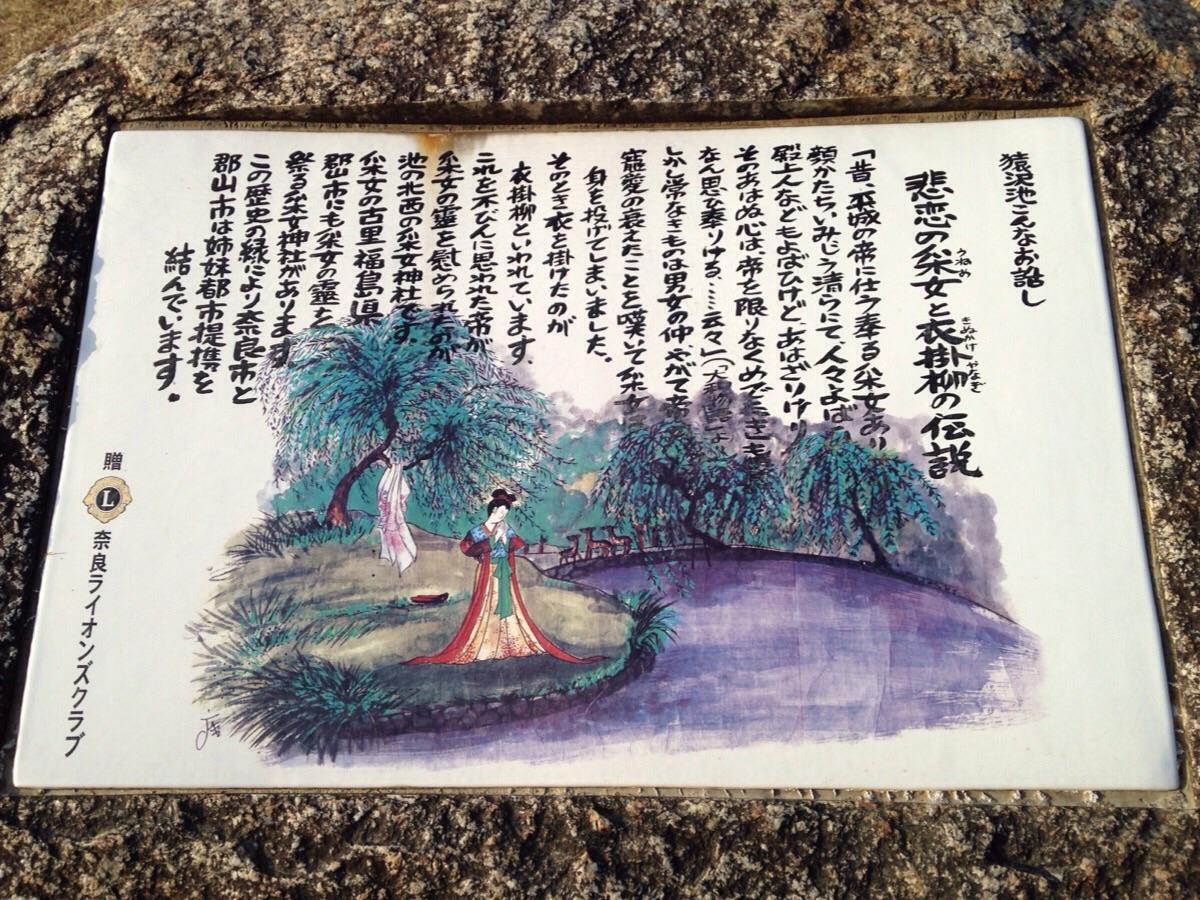 猿沢池こんなお話し
悲恋の采女と衣掛柳の伝説
うねめ
きぬかけ
やなぎ
「昔、平城の帝に仕う奉る采女あり
顔かたちいみじう清らにて、人々よばひ
殿上人などもよばひけど、あはざりけり
そのあはぬ心は、帝を限りなくめでたき
なん思ひ奉りける、…云々」(「大和物語」より
しかし常なきものは男女の仲、やがて帝
寵愛の衰えたことを嘆いて采女
身を投げてしまいました。
そのとき衣を掛けたのが
衣掛柳といわれています
これを不びんに思われた帝が
采女の霊を慰めつれたのが
池の北西の采女神社です。
采女の古里福島県
郡山市にも采女の霊を
祭る采女神社があります
この歴史の縁により奈良市と
郡山市は姉妹都市提携を
結んでいます。
贈
L
奈良ライオンズクラブ